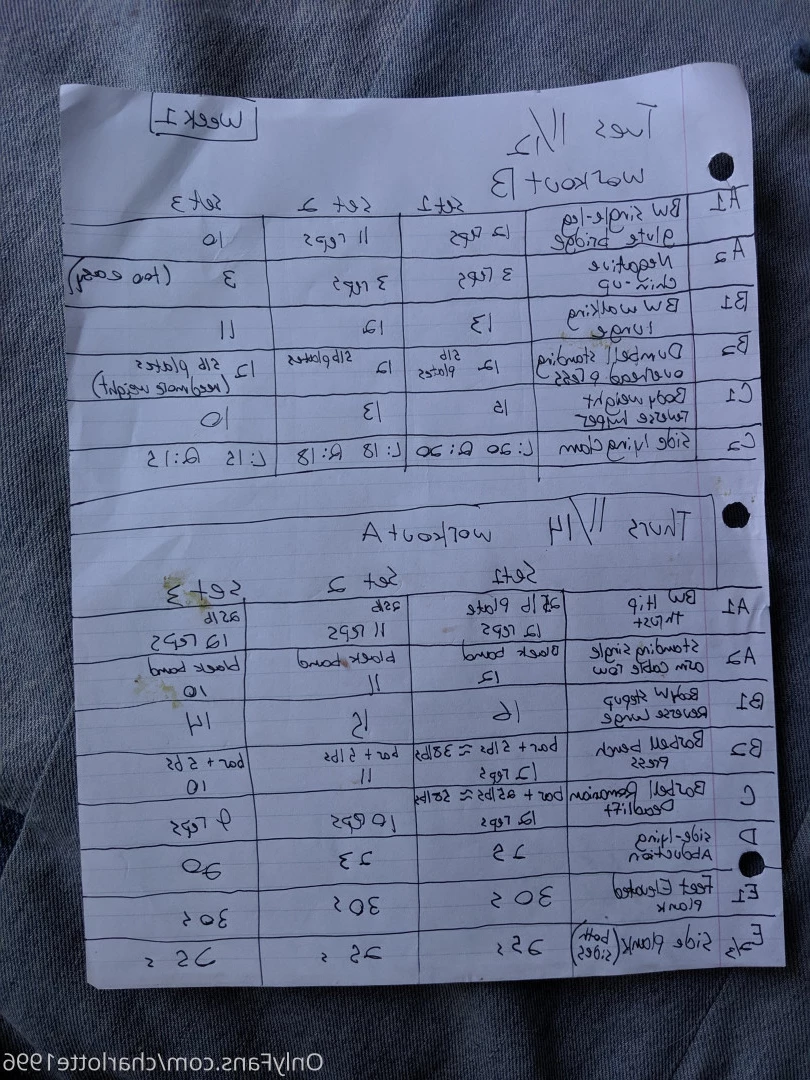 Week 1
Tues 11/12
Workout B
set 1 set 2 set 3
A1 BW single-leg glute bridge 12 reps 11 reps 10
A2 Negative chin-up 3 reps 3 reps 3 (too easy)
B1 BW walking lunge 13 12 11
B2 Dumbell standing overhead press 12 5lb plates 12 5lb plates 12 5lb plates (need more weight)
C1 Bodyweight reverse hyper 15 13 10
C2 Side lying clam L:20 R:20 L:18 R:18 L:15 R:15
Thurs 11/14 Workout A
Set 1 Set 2 Set 3
A1 BW Hip Thrust 25 lb plate 12 reps 25lb 11 reps 25lb 12 reps
A2 Standing single arm cable row black band 12 black band 11 black band 10
B1 BodyW stepup Reverse lunge 16 15 14
B2 Barbell bench press bar + 5 lbs = 38lbs 12 reps bar + 5 lbs 11 bar + 5 lbs 10
C Barbell Romanian Deadlift bar + 25lbs = 58lbs 12 reps 10 reps 9 reps
D side-lying Abduction 25 23 20
E1 Feet Elevated plank 30 s 30 s 30 s
E2/3 Side plank (both sides) 25 s 25 s 25 s
OnlyFans.com/charlotte1996